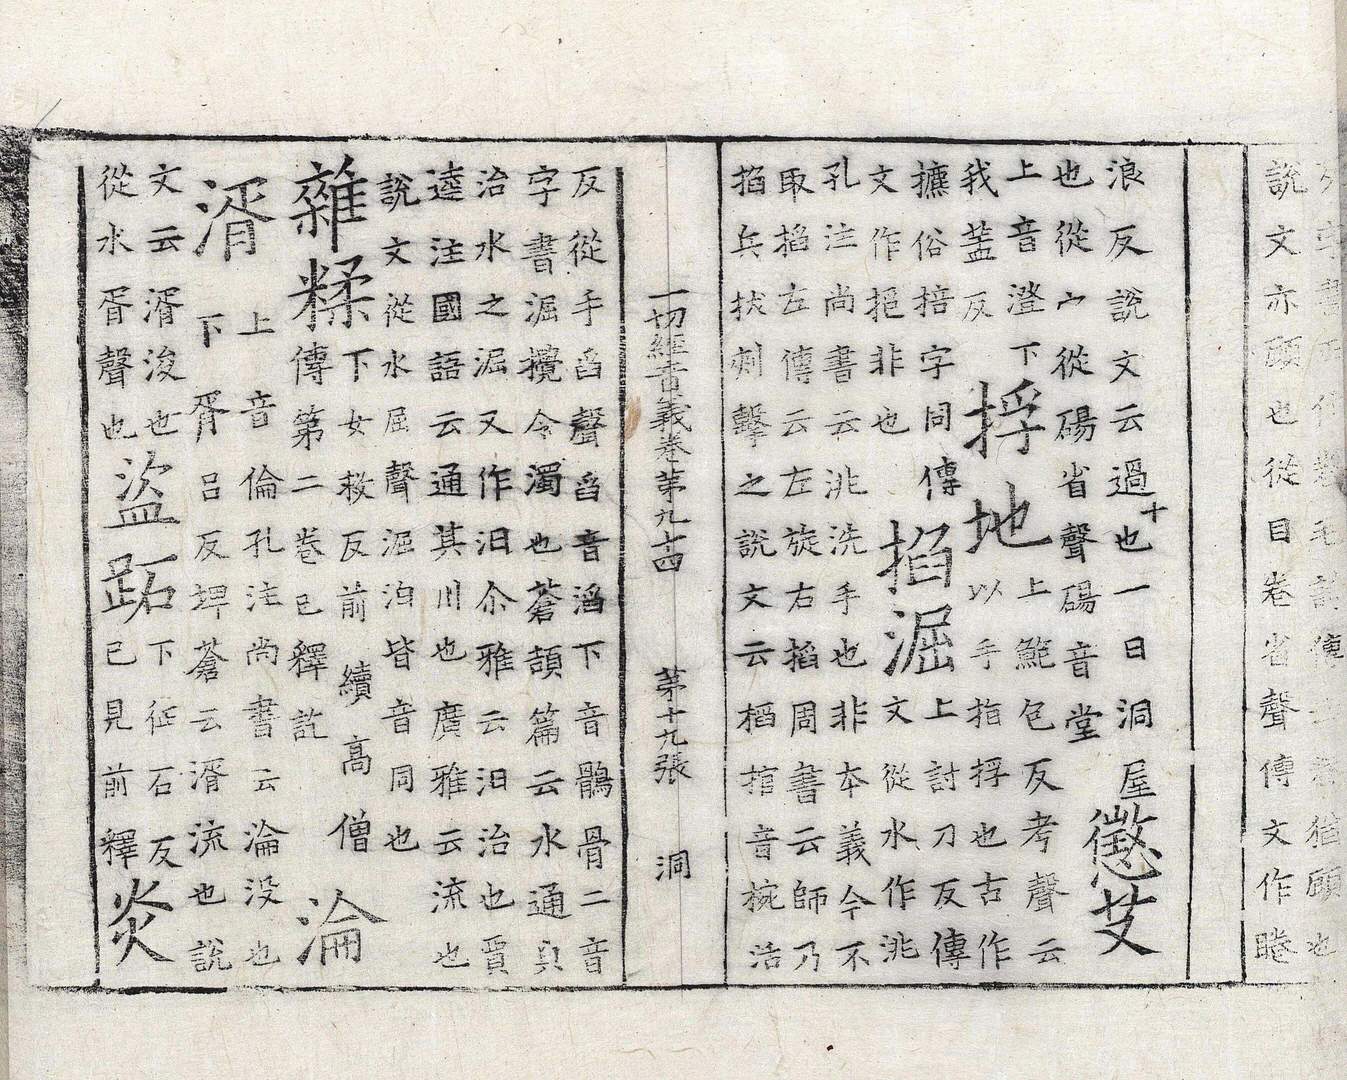 說文亦顧也從目𢍏省聲傳文作睠
浪反說文云過也一曰洞屋
也從宀從碭省聲碭音堂
懲艾
上音澄下
我蓋反
捊地
上鮑包反考聲云
以手指捊也古作
攎俗掊字同傳
文作挹非也
掐淈
上討刀反傳
文從水作洮
孔注尚書云洮洗手也非本義今不
取掐左傳云左旋右掐周書云師乃
掐兵拔刺擊之說文云掐捾音椀活
一切經音義卷第九十四 第十九張 洞
反從手舀聲舀音滔下音鶻骨二音
字書淈攪令濁也蒼頡篇云水通皃
治水之淈又作汩尒雅云汩治也賈
逵注國語云通其川也廣雅云流也
說文從水屈聲淈泊皆音同也
雜糅
下女救反前續高僧
傳第二卷已釋訖
淪湑
上音倫孔注尚書云淪没也
下胥呂反埤蒼云湑流也說
文云湑浚也
從水胥聲也
盜跖
下征石反
已見前釋
炎